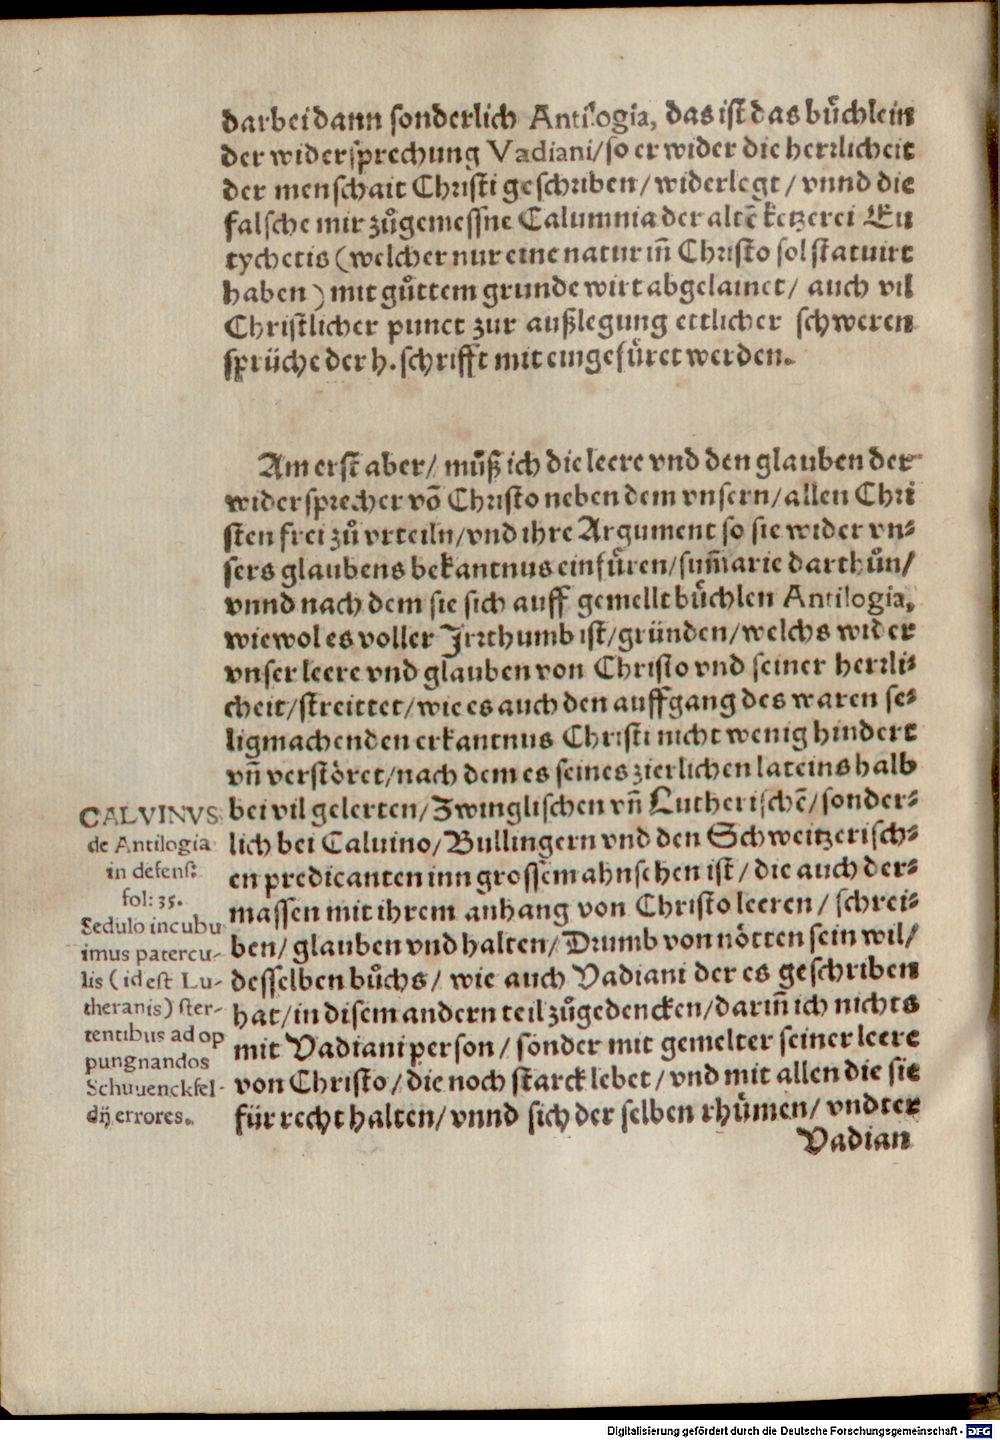 darbei dann sonderlich Antilogia, das ist das bůchlein
der widersprechung Vadiani/so er wider die herrlicheit
der menschait Christi geschriben/widerlegt/vnnd die
falsche mir zůgemessne Calumnia der altē ketzerei Eu
tychetis (welcher nur eine natur iñ Christo sol statuirt
haben) mit gůttem grunde wirt abgelainet/ auch vil
Christlicher punct zur außlegung ettlicher schweren
sprüche der h. schrifft mit eingefüret werden.
Am erst aber/ můß ich die leere vnd den glauben der
widersprecher võ Christo neben dem vnsern/allen Chri
sten frei zů vrteiln/vnd ihre Argument so sie wider vn⸗
sers glaubens bekantnus einfüren/sum̃arie darthůn/
vnnd nach dem sie sich auff gemellt bůchlen Antilogia,
wiewol es voller Jrrthumb ist/gründen/welchs wider
vnser leere vnd glauben von Christo vnd seiner herrli⸗
cheit/streittet/wie es auch den auffgang des waren se⸗
ligmachenden erkantnus Christi nicht wenig hindert
vñ verstöret/nach dem es seines zierlichen lateins halb
bei vil gelerten/Zwinglischen vñ Lutherischē/sonder⸗
lich bei Caluino/Bullingern vnd den Schweitzerisch⸗
en predicanten inn grossem ahnsehen ist/die auch der⸗
massen mit ihrem anhang von Christo leeren/ schrei⸗
ben/ glauben vnd halten/Drumb von nötten sein wil/
desselben bůchs/ wie auch Vadiani der es geschriben
hat/in disem andern teil zůgedencken/dariñ ich nichts
mit Vadiani person/ sonder mit gemelter seiner leere
von Christo/die noch starck lebet/vnd mit allen die sie
für recht halten/vnnd sich der selben rhůmen/vndter
Vadian
CALVINVS
de Antilogia
in defens:
fol: 35.
Sedulo incubu
imus patercu-
lis (id est Lu-
theranis) ster-
tentibus ad op
pungnandos
Schuuenckfel-
dij errores.
Digitalisierung gefördert durch die Deutsche Forschungsgemeinschaft - DFG